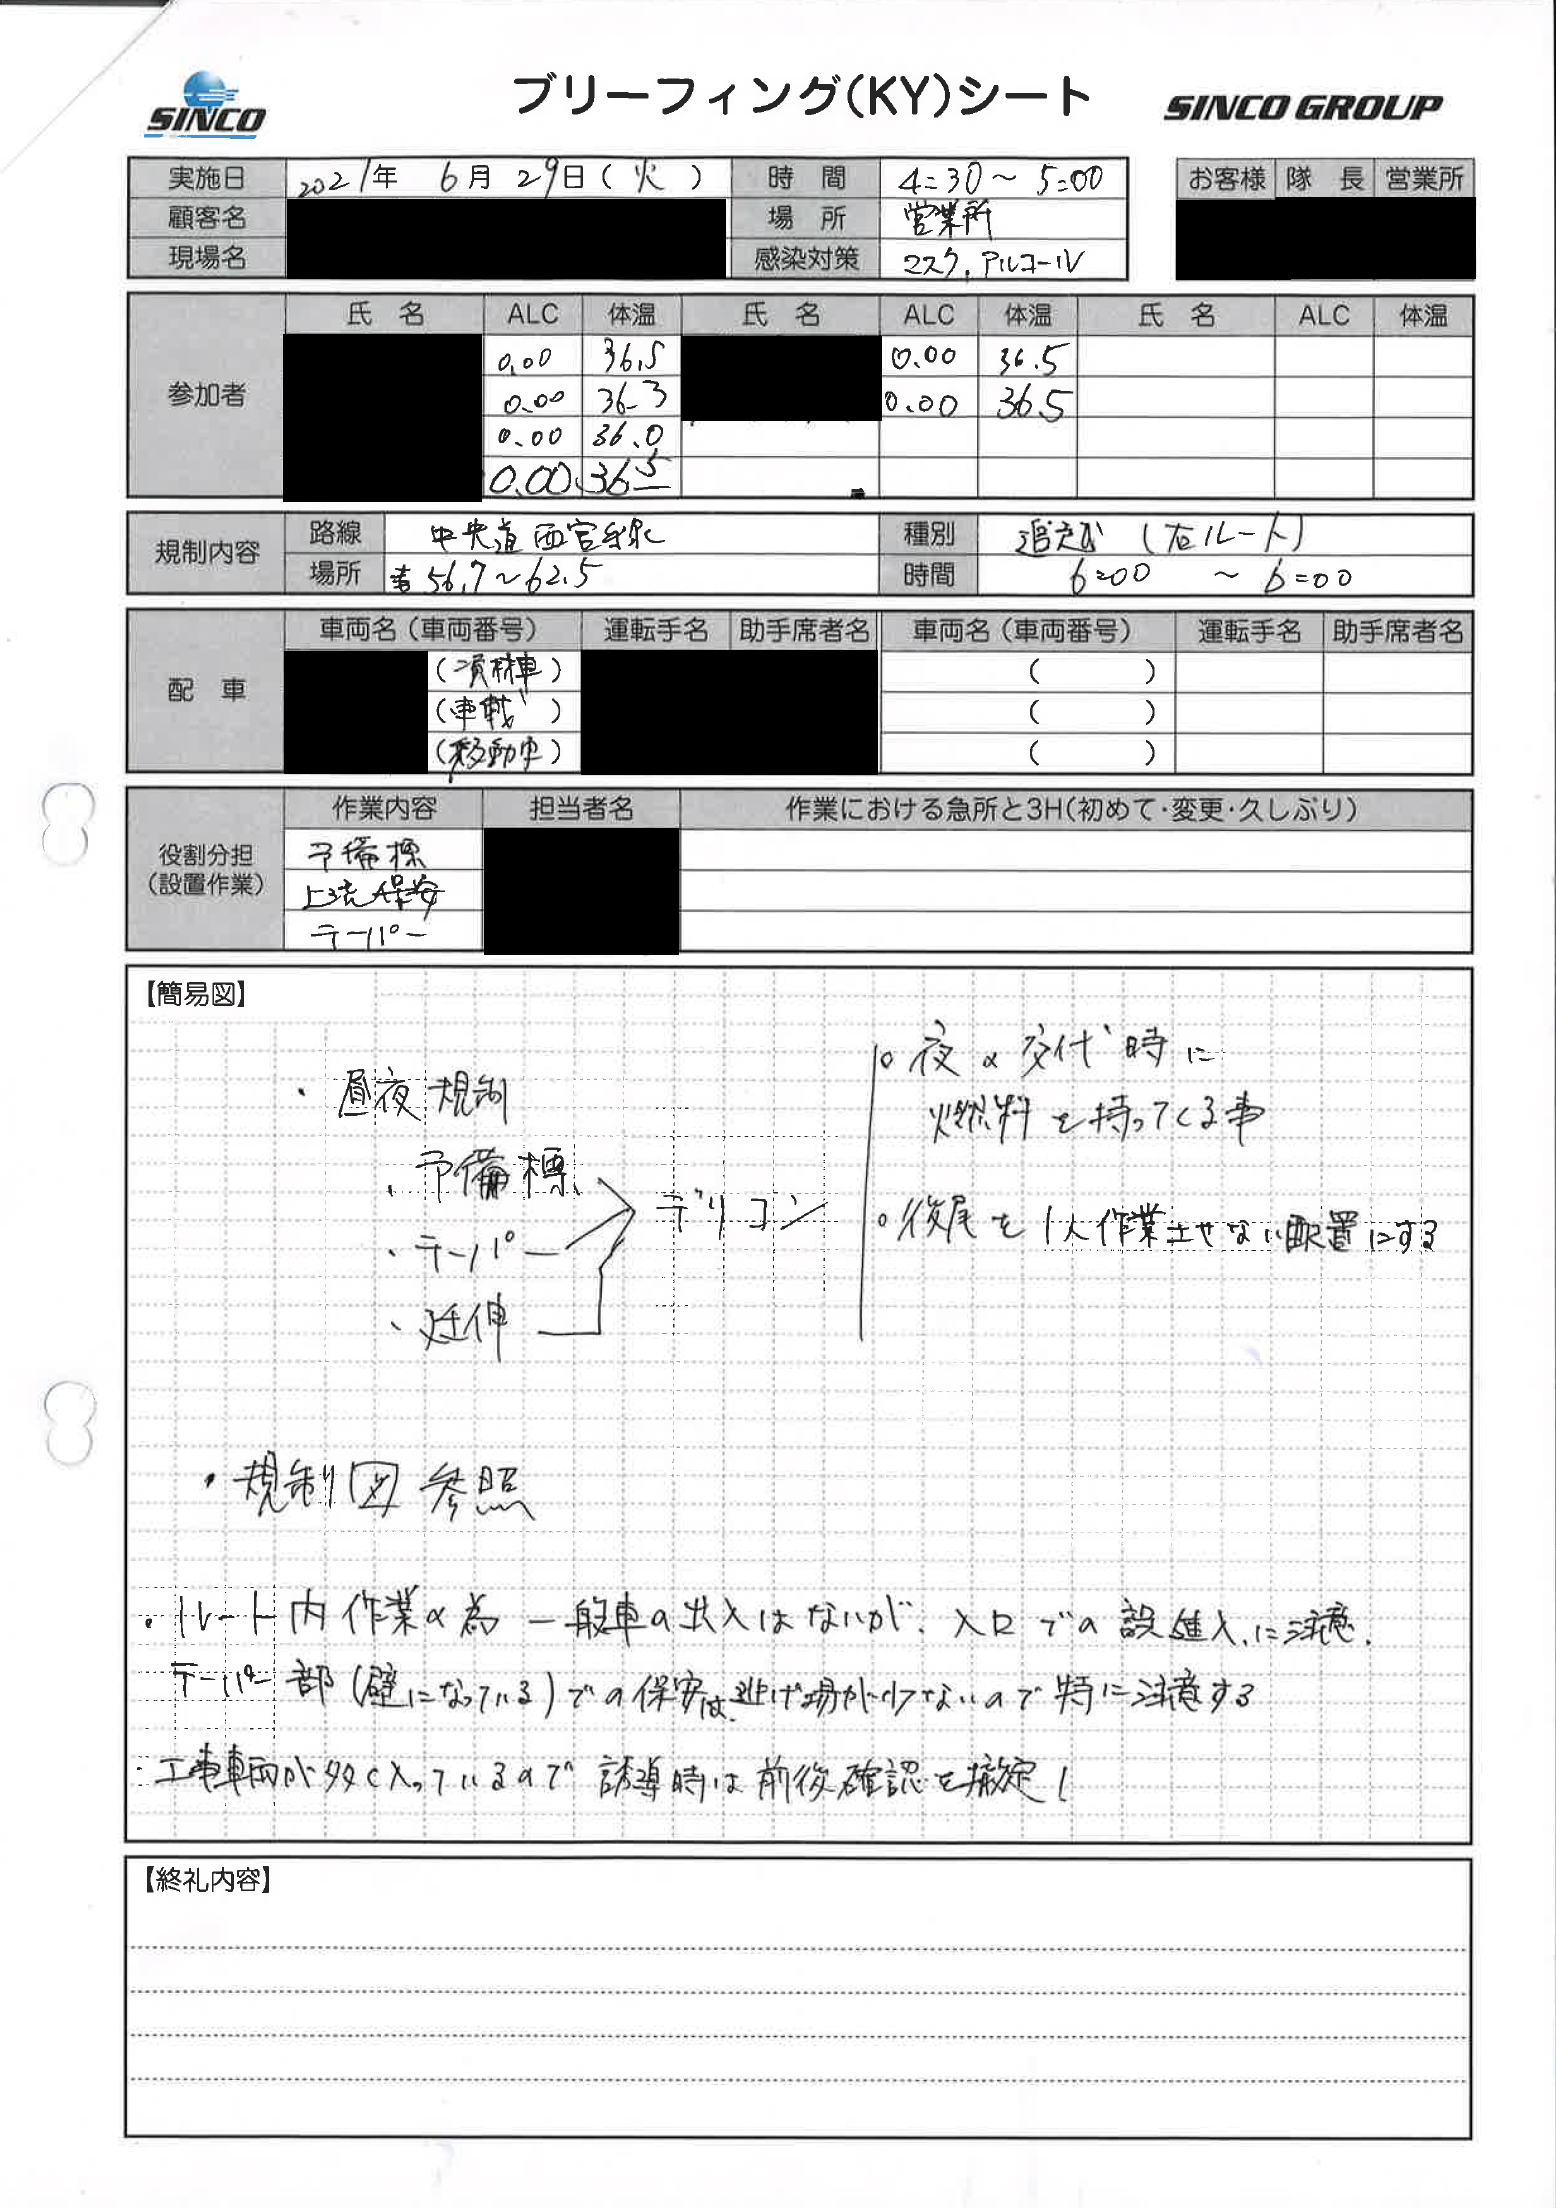 SINCO
ブリーフィング(KY)シート
SINCO GROUP
実施日 2021年 6月 29日(火) 時間 4:30～5:00
お客様 隊長 営業所
顧客名 場所 営業所
現場名 感染対策 マスク、アルコール
参加者 氏名 ALC 体温 氏名 ALC 体温 氏名 ALC 体温
0.00 36.5 0.00 36.5
0.00 36.3 0.00 36.5
0.00 36.0
0.00 36.5
規制内容 路線 中央道西宮線 種別 追越 (右ルート)
場所 56.7～62.5 時間 6:00 ～ 6:00
配車 車両名(車両番号) 運転手名 助手席者名 車両名(車両番号) 運転手名 助手席者名
(資材車) ( )
(車載) ( )
(移動車) ( )
役割分担(設置作業) 作業内容 担当者名 作業における急所と3H(初めて・変更・久しぶり)
予備標
上流保安
テーパー
【簡易図】
・昼夜規制
・予備標
・テーパー
・延伸
デリコン
○夜の交代時に
燃料を持ってくる事
○後尾を1人作業させない配置にする
・規制図参照
・ルート内作業の為一般車の出入はないが、入口での誤進入に注意.
テーパー部(壁になっている)での保安は逃げ場が少ないので特に注意する
・工事車両が多く入っているので誘導時は前後確認を徹底!
【終礼内容】